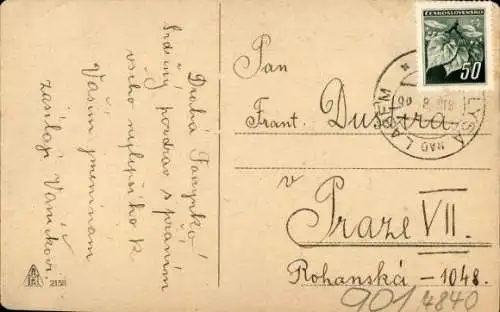 Drahá Fanynko!
Srdečný pozdrav s přáním
všeho nejlepšího k
Vašim jmeninám
zasílají Vaníčkovi
ČESKOSLOVENSKO
50
LYSÁ NAD LABEM
Pan
Frant. Dustira
v
Praze VII.
Rohanská - 1048.
901 4840
2158